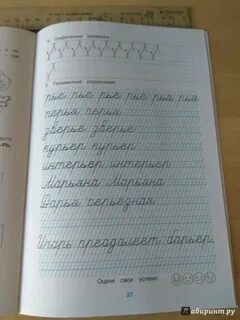 Графический диктант.
Письменные упражнения.
рьё рьё рье рье рья рья
перья перья
зверьё зверьё
курьер курьер
интерьер интерьер
Марьяна Марьяна
Дарья серьёзная.
Игорь преодолеет барьер.
Оцени свои успехи:
27
Лабиринт.ру